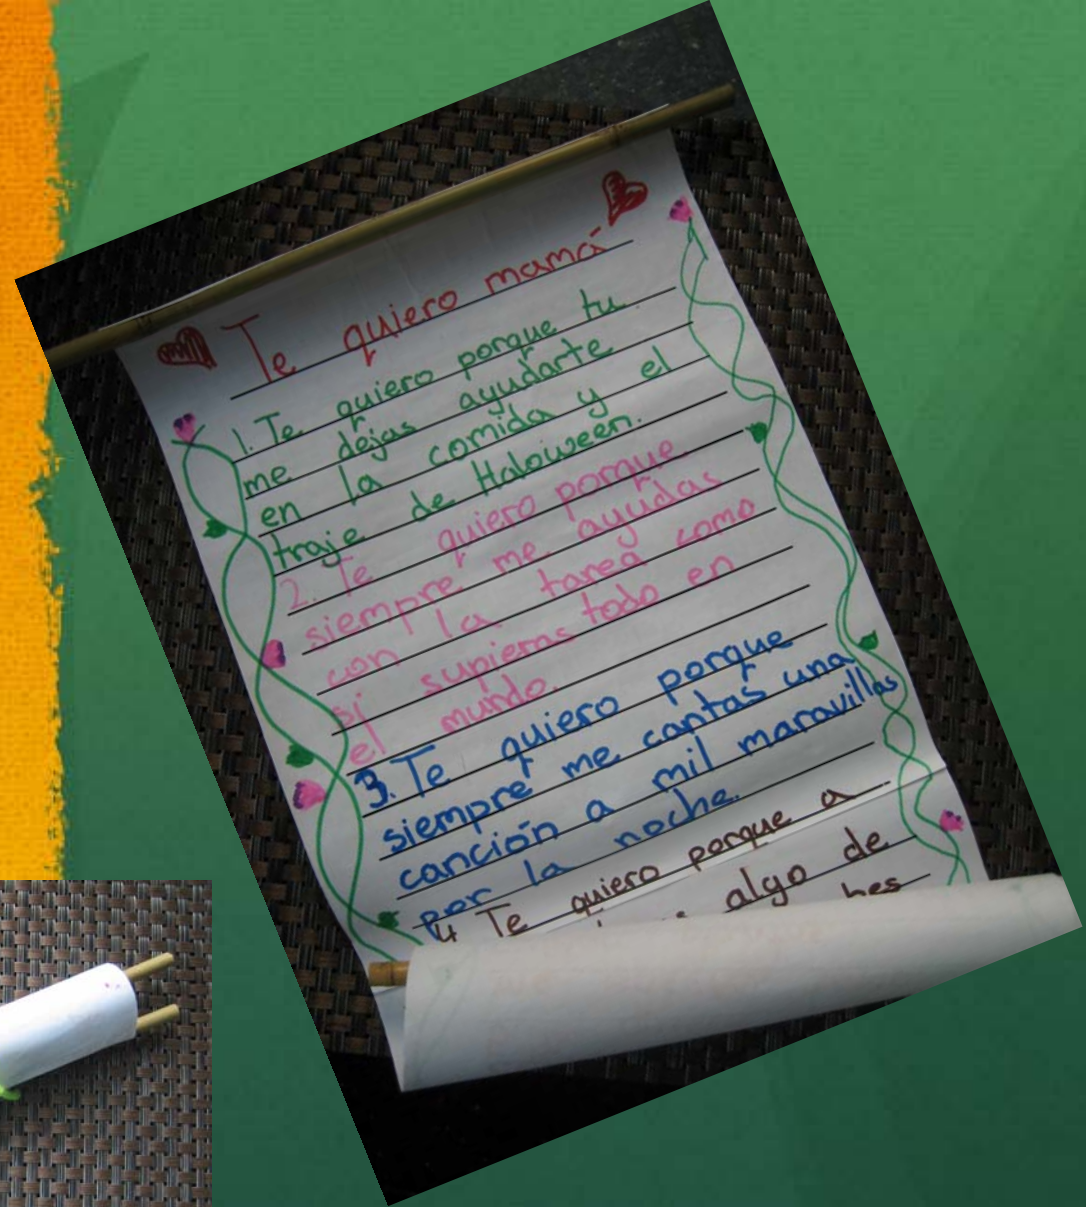 Te quiero mamá
1. Te quiero porque tu
me dejas ayudarte
en la comida y el
traje de Haloween.
2. Te quiero porque
siempre me ayudas
con la tarea como
si supieras todo en
el mundo.
3. Te quiero porque
siempre me cantas una
canción a mil maravillas
por la noche.
4 Te quiero porque a
algo de